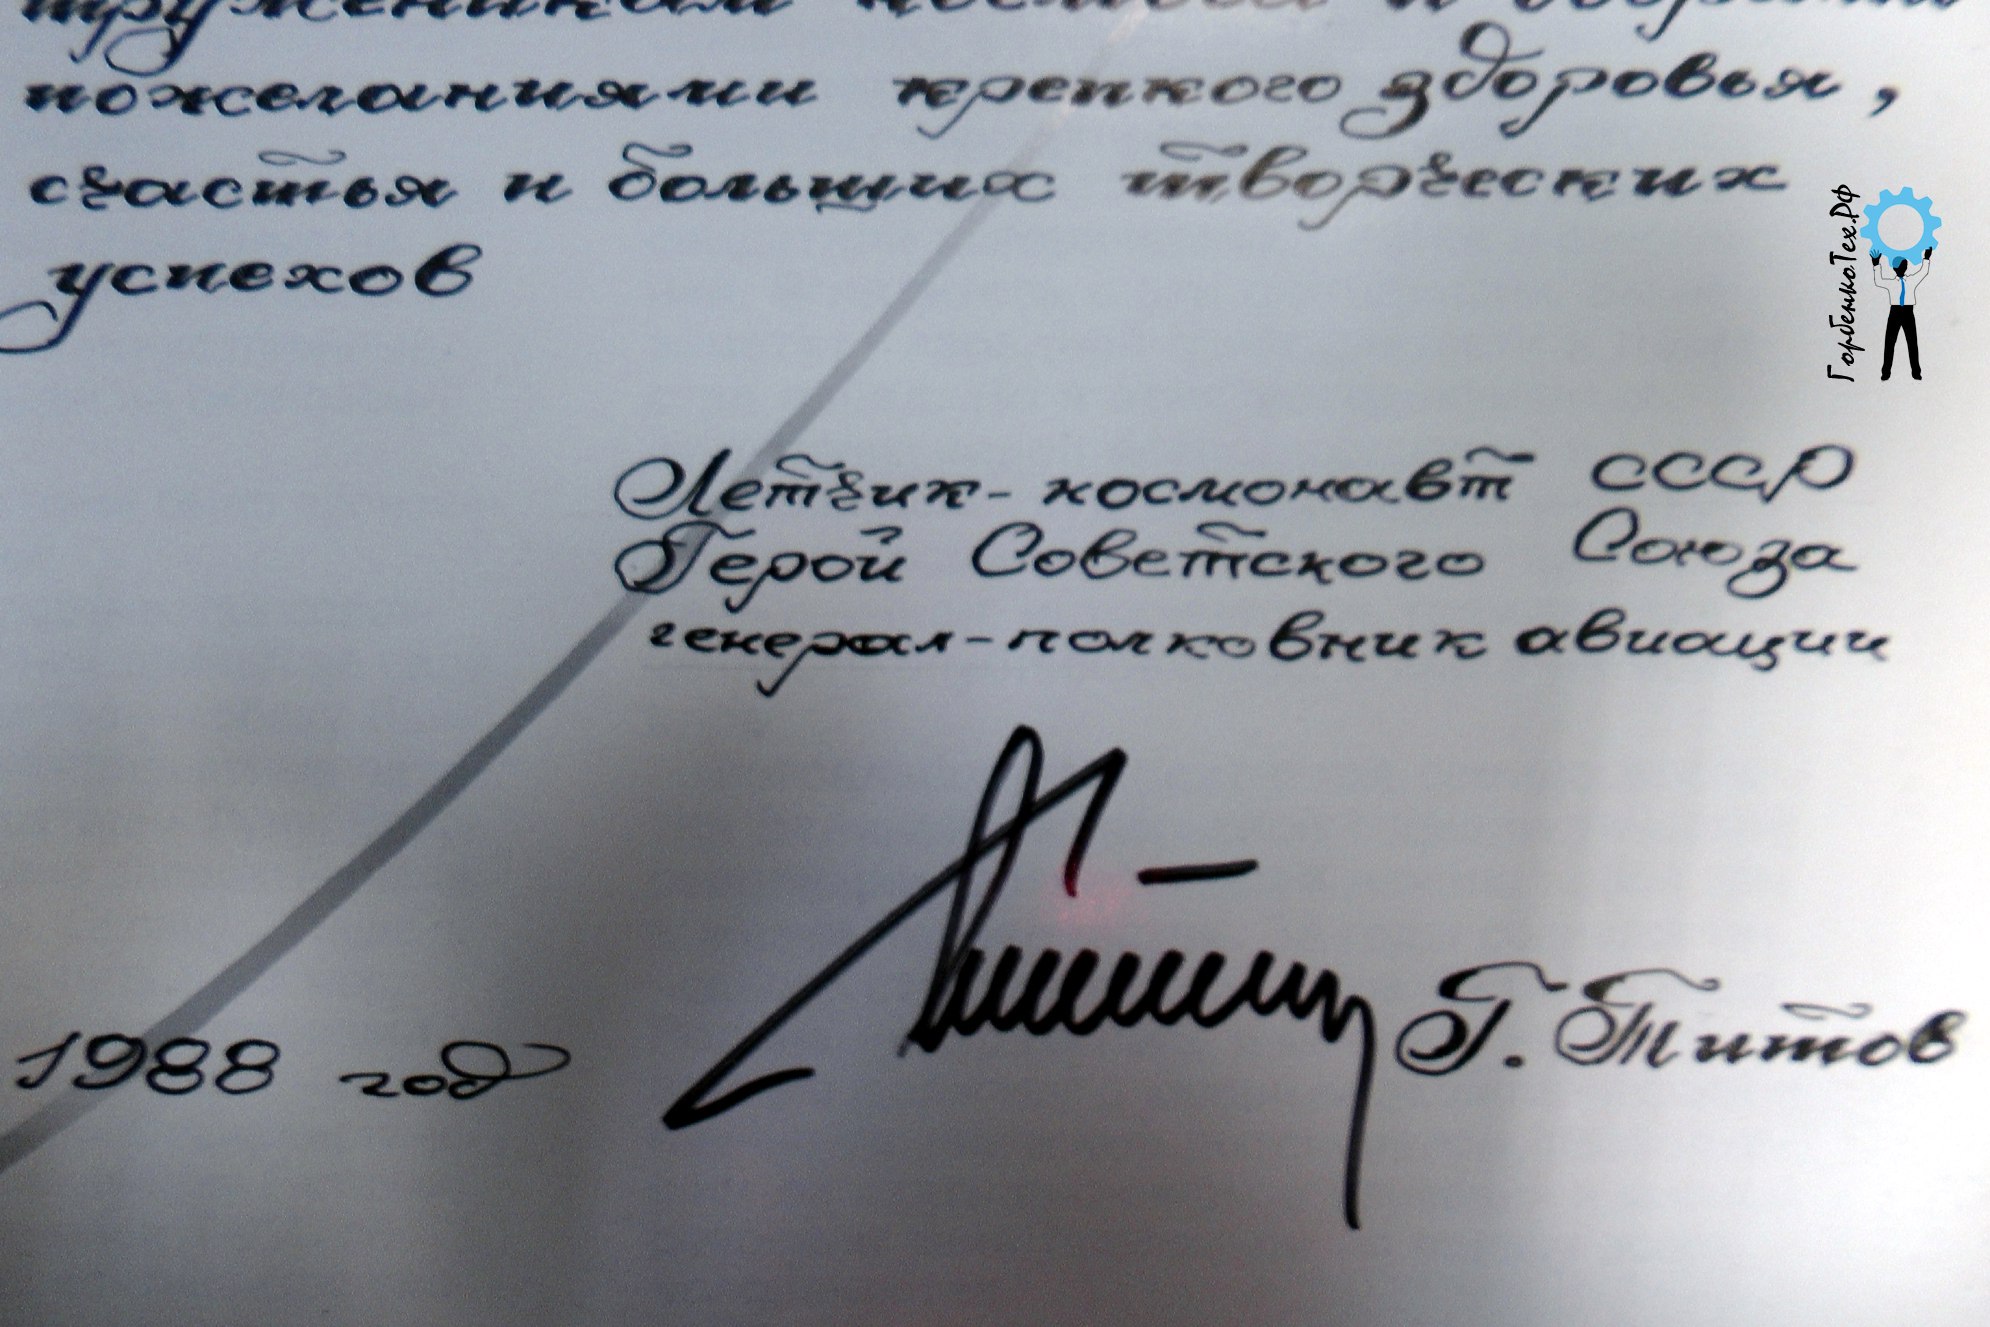 пожеланиями крепкого здоровья,
счастья и больших творческих
успехов
ГорбенкоТех.РФ
Летчик-космонавт СССР
Герой Советского Союза
генерал-полковник авиации
1988 год
Г. Титов